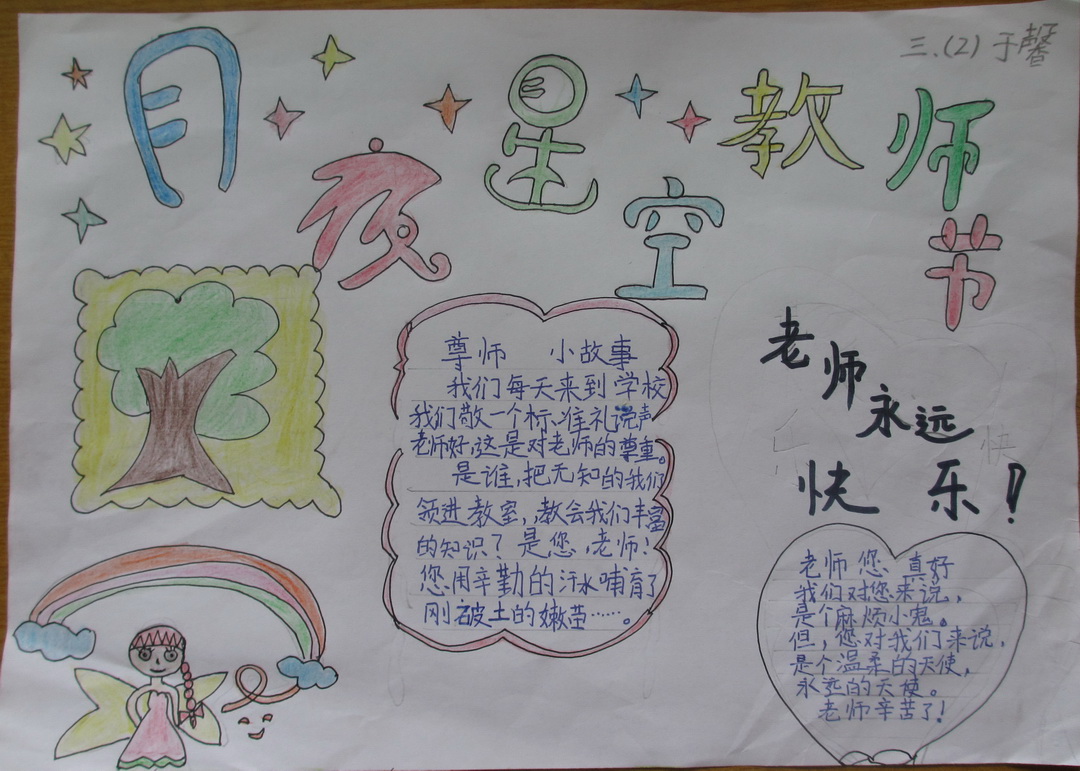 三.(2) 于馨
月夜星空
教师节
尊师 小故事
我们每天来到学校
我们敬一个标准礼说声
老师好,这是对老师的尊重。
是谁,把无知的我们
领进教室,教会我们丰富
的知识?是您,老师!
您用辛勤的汗水哺育了
刚破土的嫩苗……。
老师永远
快乐!
老师 您 真好
我们对您来说,
是个麻烦小鬼。
但,您对我们来说,
是个温柔的天使,
永远的天使。
老师辛苦了!
快